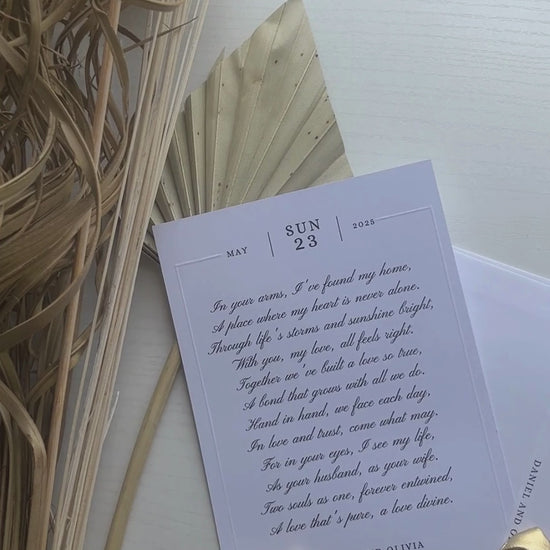 MAY | SUN 23 | 2025
In your arms, I've found my home,
A place where my heart is never alone.
Through life's storms and sunshine bright,
With you, my love, all feels right.
Together we've built a love so true,
A bond that grows with all we do.
Hand in hand, we face each day,
In love and trust, come what may.
For in your eyes, I see my life,
As your husband, as your wife.
Two souls as one, forever entwined,
A love that's pure, a love divine.
OLIVIA
DANIEL AND